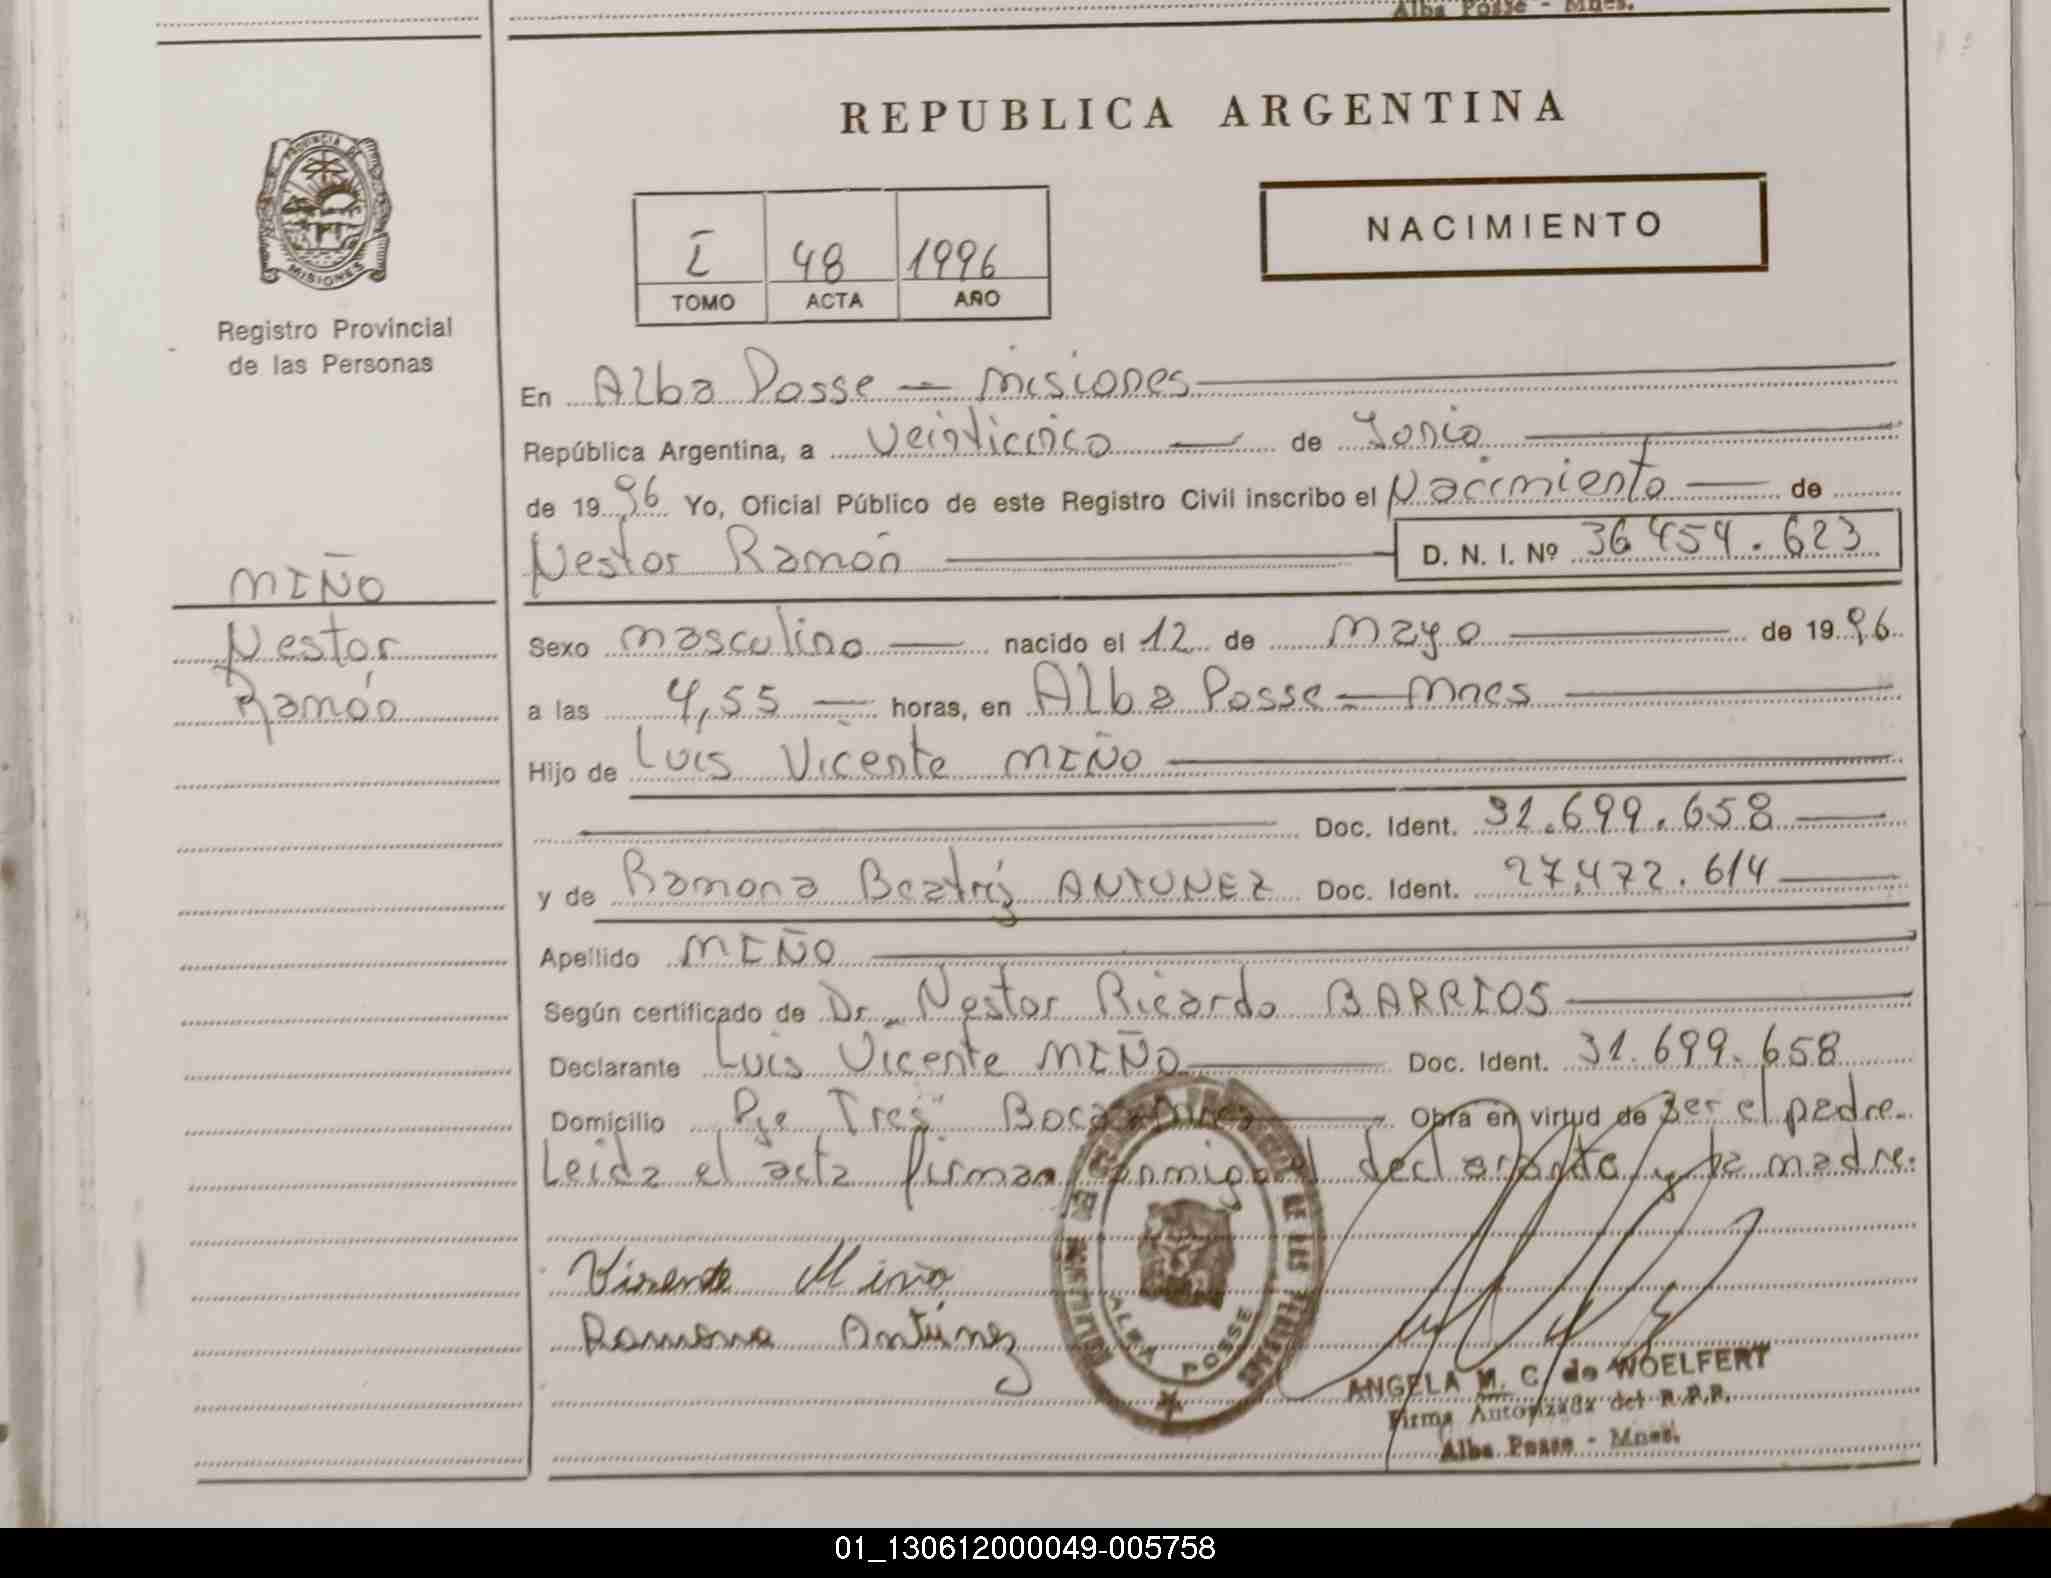 Alba Posse - Mnes.
REPUBLICA ARGENTINA
PROVINCIA DE
MISIONES
Registro Provincial
de las Personas
I 48 1996
TOMO ACTA AÑO
NACIMIENTO
En Alba Posse — Misiones
República Argentina, a veinticinco de Junio
de 1996 Yo, Oficial Público de este Registro Civil inscribo el Nacimiento de
Nestor Ramón D. N. I. Nº 36.454.623
MIÑO
Nestor
Ramón
Sexo masculino nacido el 12 de mayo de 1996
a las 4,55 horas, en Alba Posse - Mnes
Hijo de Luis Vicente MIÑO
Doc. Ident. 31.699.658
y de Ramona Beatriz ANTUNEZ Doc. Ident. 27.472.614
Apellido MIÑO
Según certificado de Dr. Nestor Ricardo BARRIOS
Declarante Luis Vicente MIÑO Doc. Ident. 31.699.658
Domicilio Pje Tres Bocas Mnes Obra en virtud de ser el padre.
Leida el acta firman conmigo el declarante y la madre.
Vicente Mino
Ramona Antúnez
ALBA POSSE
ANGELA M. C. de WOELFERT
Firma Autorizada del R.P.P.
Alba Posse - Mnes.
01_130612000049-005758